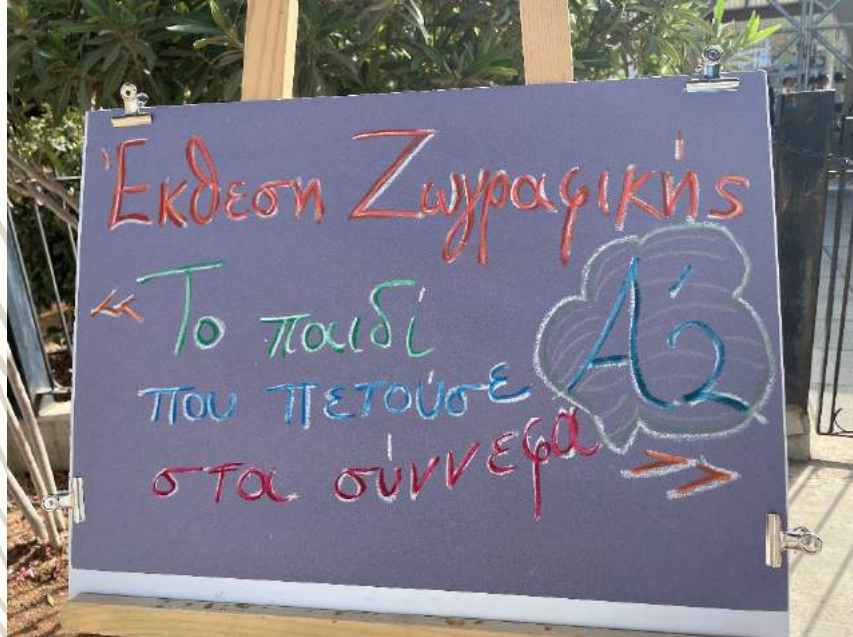 Έκθεση Ζωγραφικής
«Το παιδί
που πετούσε
στα σύννεφα»
Α'2